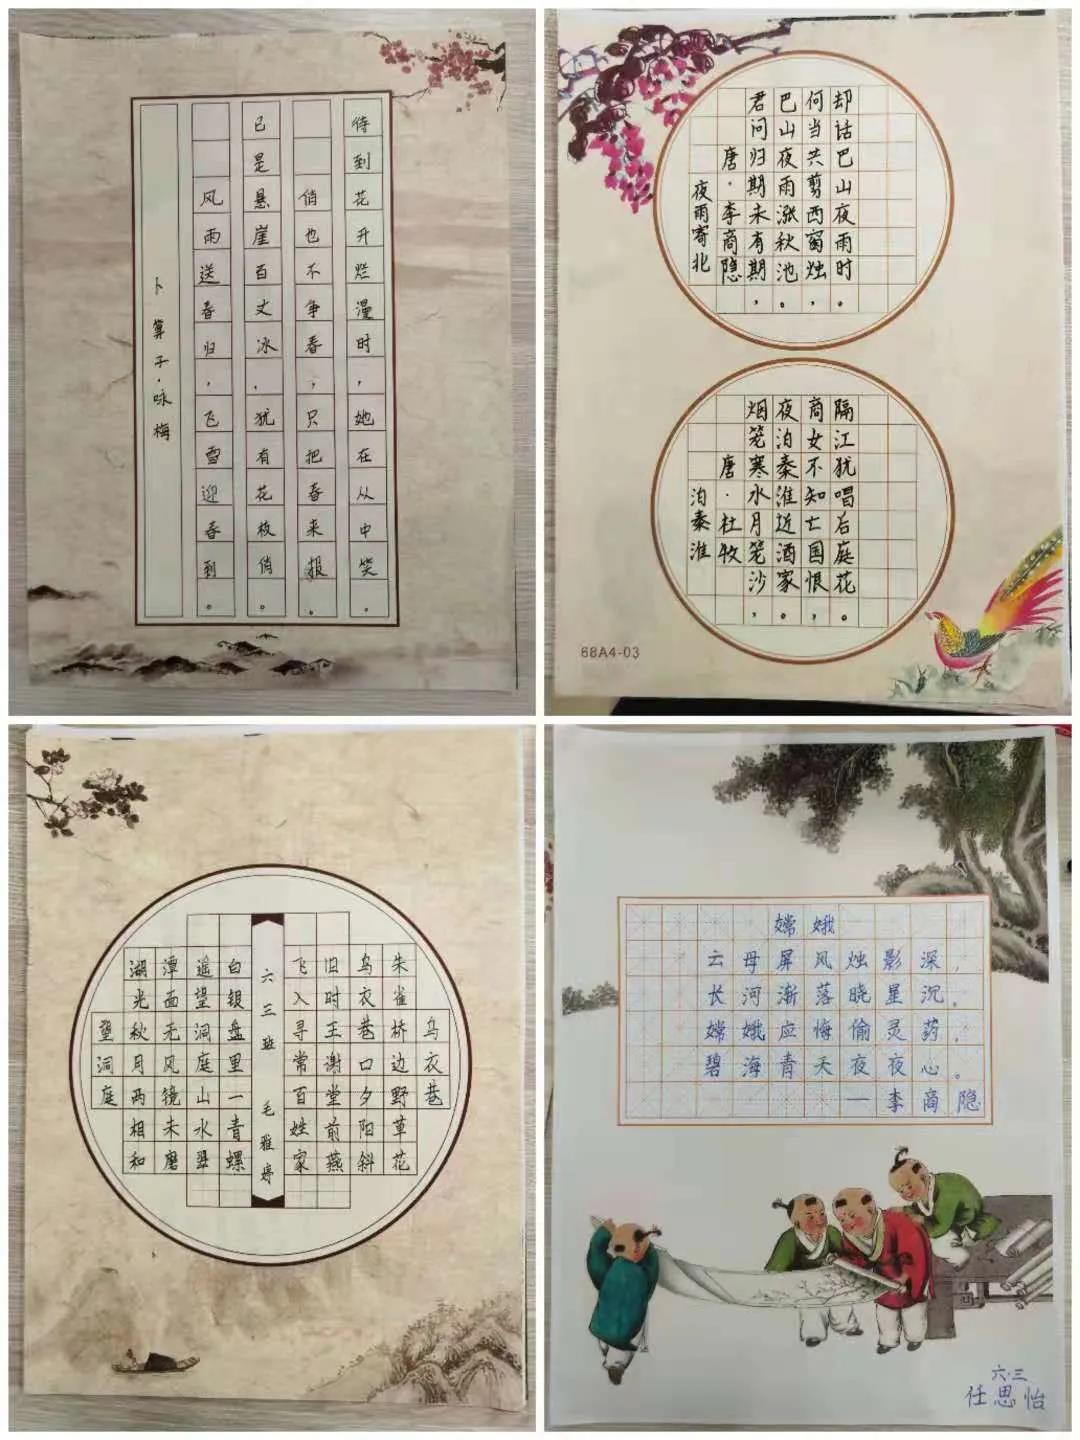 卜算子·咏梅
风雨送春归，飞雪迎春到。
已是悬崖百丈冰，犹有花枝俏。
俏也不争春，只把春来报。
待到花开烂漫时，她在从中笑。
夜雨寄北
唐·李商隐
君问归期未有期，
巴山夜雨涨秋池。
何当共剪西窗烛，
却话巴山夜雨时。
泊秦淮
唐·杜牧
烟笼寒水月笼沙，
夜泊秦淮近酒家。
商女不知亡国恨，
隔江犹唱后庭花。
68A4-03
乌衣巷
朱雀桥边野草花
乌衣巷口夕阳斜
旧时王谢堂前燕
飞入寻常百姓家
六三班 毛雅婷
望洞庭
湖光秋月两相和
潭面无风镜未磨
遥望洞庭山水翠
白银盘里一青螺
嫦娥
云母屏风烛影深，
长河渐落晓星沉。
嫦娥应悔偷灵药，
碧海青天夜夜心。
一李商隐
六·三
任思怡